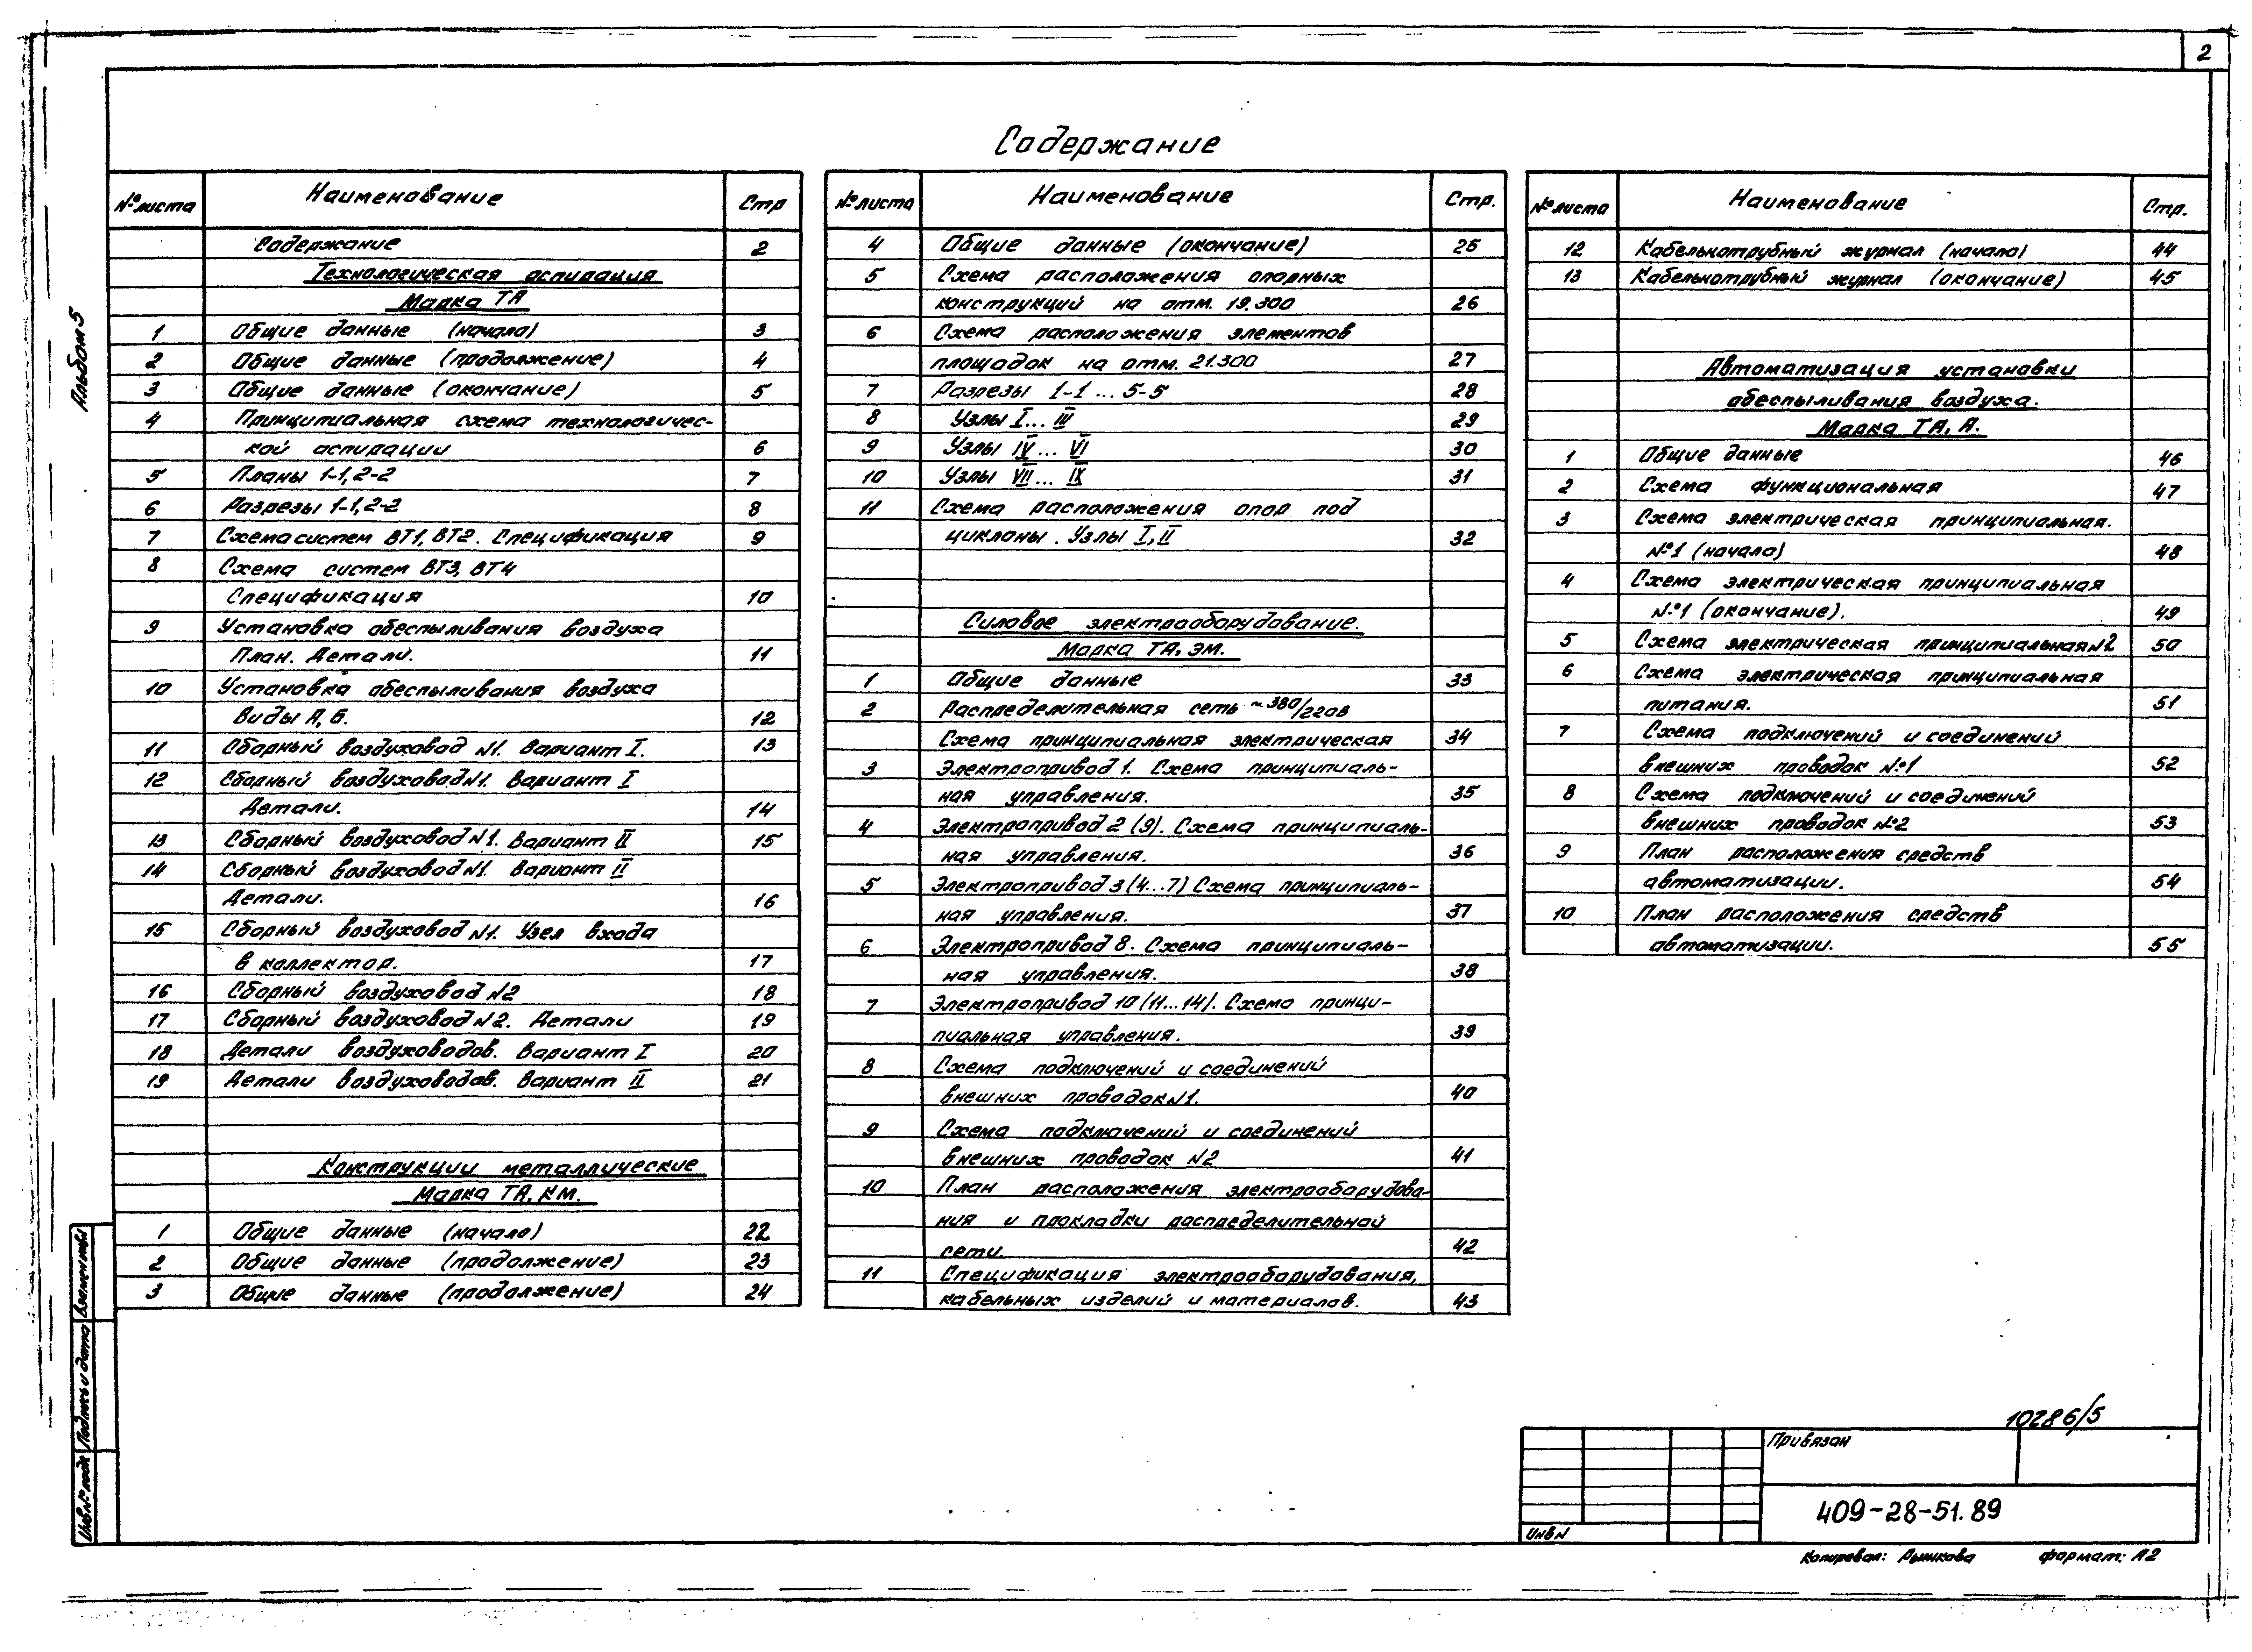 2
Альбом 5
Содержание
№ листа Наименование Стр
Содержание 2
Технологическая аспирация
Марка ТА
1 Общие данные (начало) 3
2 Общие данные (продолжение) 4
3 Общие данные (окончание) 5
4 Принципиальная схема технологичес-
кой аспирации 6
5 Планы 1-1, 2-2 7
6 Разрезы 1-1, 2-2 8
7 Схема систем ВТ1, ВТ2. Спецификация 9
8 Схема систем ВТ3, ВТ4
Спецификация 10
9 Установка обеспыливания воздуха
План. Детали. 11
10 Установка обеспыливания воздуха
Виды А, Б. 12
11 Сборный воздуховод N1. Вариант I. 13
12 Сборный воздуховод N1. Вариант I
Детали. 14
13 Сборный воздуховод N1. Вариант II 15
14 Сборный воздуховод N1. Вариант II
Детали. 16
15 Сборный воздуховод N1. Узел входа
в коллектор. 17
16 Сборный воздуховод N2 18
17 Сборный воздуховод N2. Детали 19
18 Детали воздуховодов. Вариант I 20
19 Детали воздуховодов. Вариант II 21
Конструкции металлические
Марка ТА, КМ.
1 Общие данные (начало) 22
2 Общие данные (продолжение) 23
3 Общие данные (продолжение) 24
№ листа Наименование Стр.
4 Общие данные (окончание) 25
5 Схема расположения опорных
конструкций на отм. 19.300 26
6 Схема расположения элементов
площадок на отм. 21.300 27
7 Разрезы 1-1 ... 5-5 28
8 Узлы I... III 29
9 Узлы IV... VI 30
10 Узлы VII... IX 31
11 Схема расположения опор под
циклоны. Узлы I, II 32
Силовое электрооборудование.
Марка ТА, ЭМ.
1 Общие данные 33
2 Распределительная сеть ~380/220в
Схема принципиальная электрическая 34
3 Электропривод 1. Схема принципиаль-
ная управления. 35
4 Электропривод 2 (9). Схема принципиаль-
ная управления. 36
5 Электропривод 3 (4...7) Схема принципиаль-
ная управления. 37
6 Электропривод 8. Схема принципиаль-
ная управления. 38
7 Электропривод 10 (11...14). Схема принци-
пиальная управления. 39
8 Схема подключений и соединений
внешних проводок N1. 40
9 Схема подключений и соединений
внешних проводок N2 41
10 План расположения электрооборудова-
ния и прокладки распределительной
сети. 42
11 Спецификация электрооборудования,
кабельных изделий и материалов. 43
№ листа Наименование Стр.
12 Кабельнотрубный журнал (начало) 44
13 Кабельнотрубный журнал (окончание) 45
Автоматизация установки
обеспыливания воздуха.
Марка ТА, А.
1 Общие данные 46
2 Схема функциональная 47
3 Схема электрическая принципиальная.
№1 (начало) 48
4 Схема электрическая принципиальная
№1 (окончание). 49
5 Схема электрическая принципиальная N2 50
6 Схема электрическая принципиальная
питания. 51
7 Схема подключений и соединений
внешних проводок №1 52
8 Схема подключений и соединений
внешних проводок №2 53
9 План расположения средств
автоматизации. 54
10 План расположения средств
автоматизации. 55
Инв № подл Подпись и дата Взаменинв
10286/5
Привязан
409-28-51.89
Инв N
Копировал: Рыжкова формат: А2